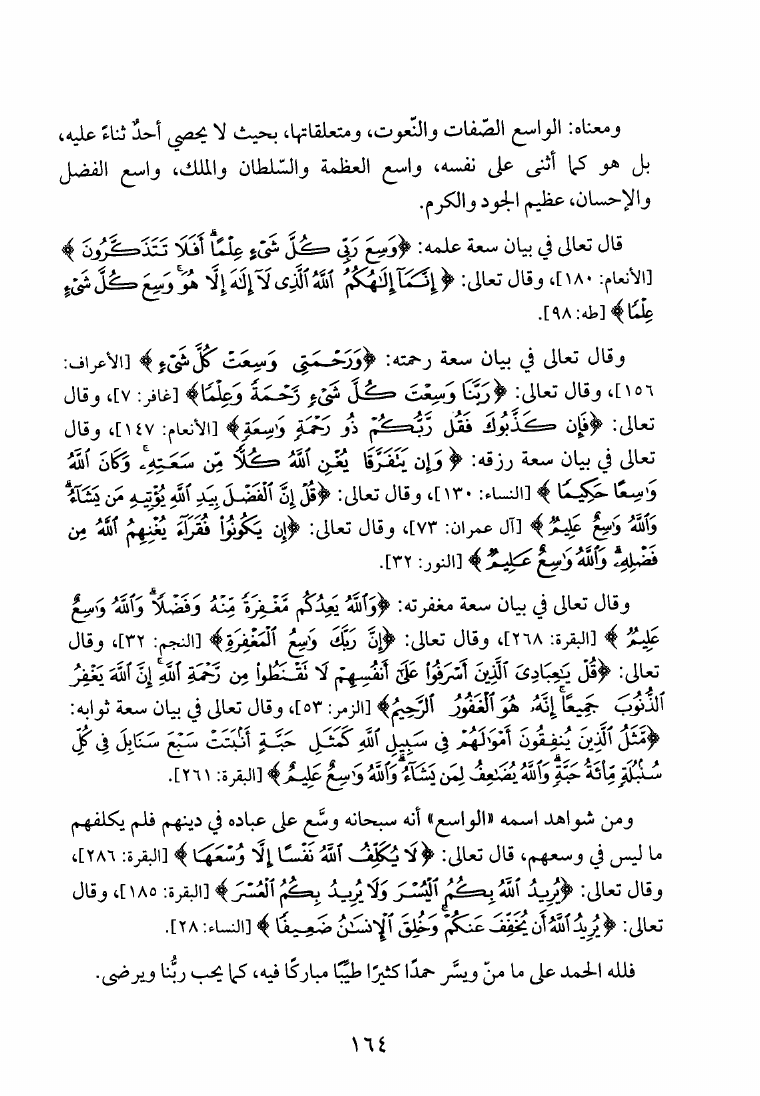 ومعناه: الواسع الصّفات والنّعوت، ومتعلقاتها، بحيث لا يحصي أحدٌ ثناءً عليه،
بل هو كما أثنى على نفسه، واسع العظمة والسّلطان والملك، واسع الفضل
والإحسان، عظيم الجود والكرم.
قال تعالى في بيان سعة علمه: ﴿وَسِعَ رَبِّي كُلَّ شَيْءٍ عِلْمًا ۗ أَفَلَا تَتَذَكَّرُونَ﴾
[الأنعام: ١٨٠]، وقال تعالى: ﴿إِنَّمَآ إِلَٰهُكُمُ ٱللَّهُ ٱلَّذِى لَآ إِلَٰهَ إِلَّا هُوَ ۚ وَسِعَ كُلَّ شَىْءٍ
عِلْمًا﴾ [طه: ٩٨].
وقال تعالى في بيان سعة رحمته: ﴿وَرَحْمَتِى وَسِعَتْ كُلَّ شَىْءٍ﴾ [الأعراف:
١٥٦]، وقال تعالى: ﴿رَبَّنَا وَسِعْتَ كُلَّ شَىْءٍ رَّحْمَةً وَعِلْمًا﴾ [غافر: ٧]، وقال
تعالى: ﴿فَإِن كَذَّبُوكَ فَقُل رَّبُّكُمْ ذُو رَحْمَةٍ وَٰسِعَةٍ﴾ [الأنعام: ١٤٧]، وقال
تعالى في بيان سعة رزقه: ﴿وَإِن يَتَفَرَّقَا يُغْنِ ٱللَّهُ كُلًّا مِّن سَعَتِهِۦ ۚ وَكَانَ ٱللَّهُ
وَٰسِعًا حَكِيمًا﴾ [النساء: ١٣٠]، وقال تعالى: ﴿قُلْ إِنَّ ٱلْفَضْلَ بِيَدِ ٱللَّهِ يُؤْتِيهِ مَن يَشَآءُ ۗ
وَٱللَّهُ وَٰسِعٌ عَلِيمٌ﴾ [آل عمران: ٧٣]، وقال تعالى: ﴿إِن يَكُونُوا۟ فُقَرَآءَ يُغْنِهِمُ ٱللَّهُ مِن
فَضْلِهِۦ ۗ وَٱللَّهُ وَٰسِعٌ عَلِيمٌ﴾ [النور: ٣٢].
وقال تعالى في بيان سعة مغفرته: ﴿وَٱللَّهُ يَعِدُكُم مَّغْفِرَةً مِّنْهُ وَفَضْلًا ۗ وَٱللَّهُ وَٰسِعٌ
عَلِيمٌ﴾ [البقرة: ٢٦٨]، وقال تعالى: ﴿إِنَّ رَبَّكَ وَٰسِعُ ٱلْمَغْفِرَةِ﴾ [النجم: ٣٢]، وقال
تعالى: ﴿قُلْ يَٰعِبَادِىَ ٱلَّذِينَ أَسْرَفُوا۟ عَلَىٰٓ أَنفُسِهِمْ لَا تَقْنَطُوا۟ مِن رَّحْمَةِ ٱللَّهِ ۚ إِنَّ ٱللَّهَ يَغْفِرُ
ٱلذُّنُوبَ جَمِيعًا ۚ إِنَّهُۥ هُوَ ٱلْغَفُورُ ٱلرَّحِيمُ﴾ [الزمر: ٥٣]، وقال تعالى في بيان سعة ثوابه:
﴿مَّثَلُ ٱلَّذِينَ يُنفِقُونَ أَمْوَٰلَهُمْ فِى سَبِيلِ ٱللَّهِ كَمَثَلِ حَبَّةٍ أَنۢبَتَتْ سَبْعَ سَنَابِلَ فِى كُلِّ
سُنۢبُلَةٍ مِّا۟ئَةُ حَبَّةٍ ۗ وَٱللَّهُ يُضَٰعِفُ لِمَن يَشَآءُ ۗ وَٱللَّهُ وَٰسِعٌ عَلِيمٌ﴾ [البقرة: ٢٦١].
ومن شواهد اسمه «الواسع» أنه سبحانه وسَّع على عباده في دينهم فلم يكلفهم
ما ليس في وسعهم، قال تعالى: ﴿لَا يُكَلِّفُ ٱللَّهُ نَفْسًا إِلَّا وُسْعَهَا﴾ [البقرة: ٢٨٦]،
وقال تعالى: ﴿يُرِيدُ ٱللَّهُ بِكُمُ ٱلْيُسْرَ وَلَا يُرِيدُ بِكُمُ ٱلْعُسْرَ﴾ [البقرة: ١٨٥]، وقال
تعالى: ﴿يُرِيدُ ٱللَّهُ أَن يُخَفِّفَ عَنكُمْ ۚ وَخُلِقَ ٱلْإِنسَٰنُ ضَعِيفًا﴾ [النساء: ٢٨].
فلله الحمد على ما منّ ويسَّر حمدًا كثيرًا طيّبًا مباركًا فيه، كما يحب ربُّنا ويرضى.
١٦٤